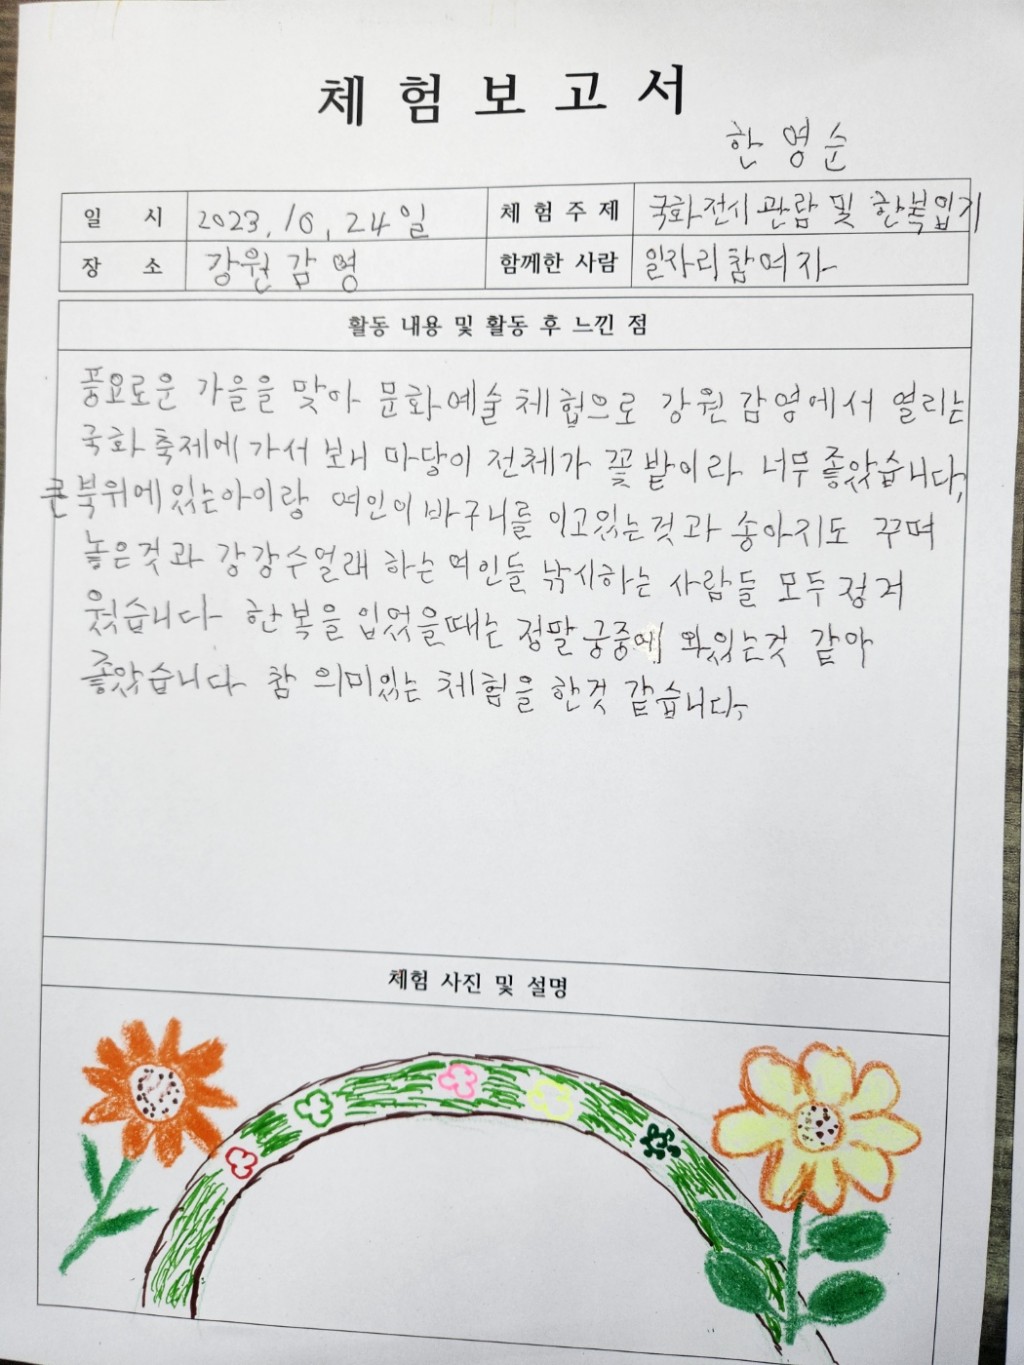 체험보고서
한영순
일 시 2023. 10. 24일 체험주제 국화전시 관람 및 한복입기
장 소 강원감영 함께한 사람 일자리참여자
활동 내용 및 활동 후 느낀 점
풍요로운 가을을 맞아 문화예술체험으로 강원감영에서 열리는
국화축제에 가서 보니 마당이 전체가 꽃밭이라 너무 좋았습니다,
큰북위에있는아이랑 여인이 바구니를 이고있는것과 송아지도 꾸며
놓은것과 강강수얼래 하는 여인들 낚시하는 사람들 모두 정겨
웠습니다 한복을 입었을때는 정말궁중에 와있는것 같아
좋았습니다 참 의미있는 체험을 한것 같습니다,
체험 사진 및 설명